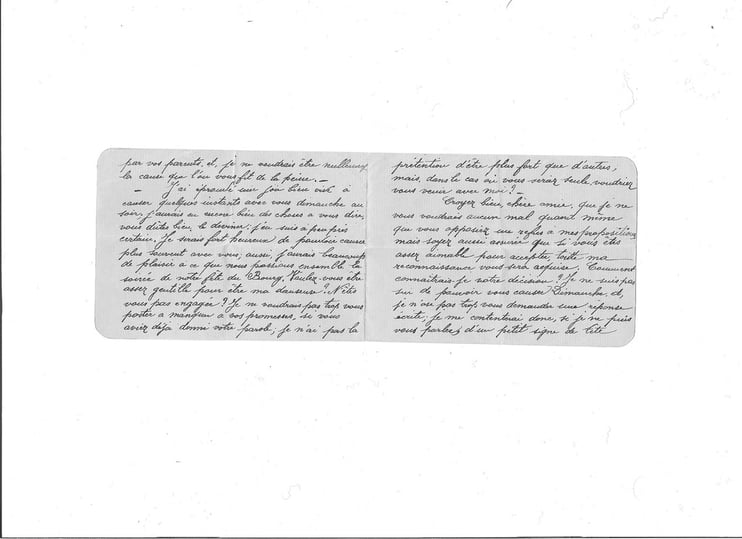 par vos parents, et, je ne voudrais être nullement
la cause que l'on vous fit de la peine. _
_ J'ai éprouvé une joie bien vive à
causer quelques instants avec vous dimanche au
soir, j'aurais eu encore bien des choses à vous dire,
vous dites bien, le deviner, j'en suis à peu près
certain. Je serais fort heureux de pouvoir causer
plus souvent avec vous, aussi, j'aurais beaucoup
de plaisir à ce que nous passions ensemble la
soirée de notre fête du Bourg. Voulez-vous être
assez gentille pour être ma danseuse? N'êtes
vous pas engagée? Je ne voudrais pas trop vous
porter à manquer à vos promesses, si vous
aviez déjà donné votre parole, je n'ai pas la
prétention d'être plus fort que d'autres,
mais, dans le cas où vous seriez seule voudriez
vous venir avec moi? _
Croyez bien, chère amie, que je ne
vous voudrais aucun mal quant même
que vous opposiez un refus à mes propositions
mais soyez aussi assurée que si vous êtes
assez aimable pour accepter, toute ma
reconnaissance vous sera acquise. Comment
connaîtrais-je votre décision? Je ne suis pas
sur de pouvoir vous causer Dimanche, et,
je n'ose pas trop vous demander une réponse
écrite, je me contenterai donc, si je ne puis
vous parler, d'un petit signe de tête